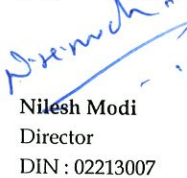 Nilesh Modi
Director
DIN : 02213007